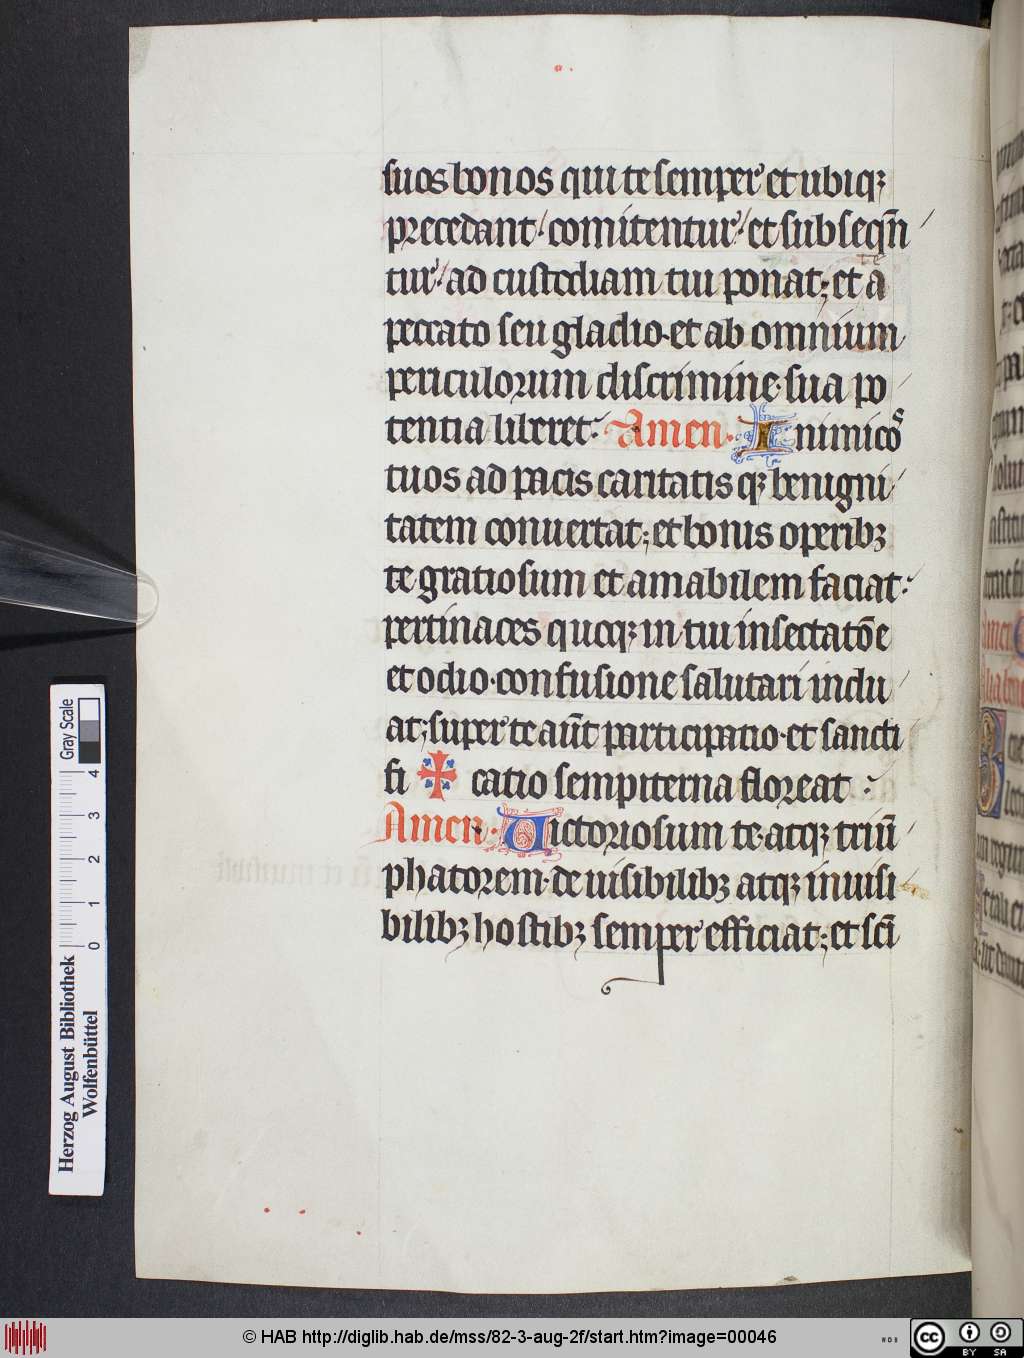 suos bonos qui te semper et ubiqꝫ
precedant comitentur et subseqn̄
te
tur ad custodiam tui ponat; et a
peccato seu gladio et ab omnium
periculorum discrimine sua po
tentia liberet. Amen. Inimicoꝰ
tuos ad pacis caritatis qꝫ benigni
tatem conuertat; et bonis operibꝫ
te gratiosum et amabilem faciat.
pertinaces quoqꝫ in tui insectatōe
et odio confusione salutari indu
at; super te aūt participatio et sancti
fi ✠ catio sempiterna floreat.
Amen. Uictoriosum te atqꝫ triū
phatorem de uisibilibꝫ atqꝫ inuisi
bilibꝫ hostibꝫ semper efficiat; et sc̄i
Gray Scale
0 1 2 3 4
Herzog August Bibliothek
Wolfenbüttel
© HAB http://diglib.hab.de/mss/82-3-aug-2f/start.htm?image=00046
WDB
cc
BY SA